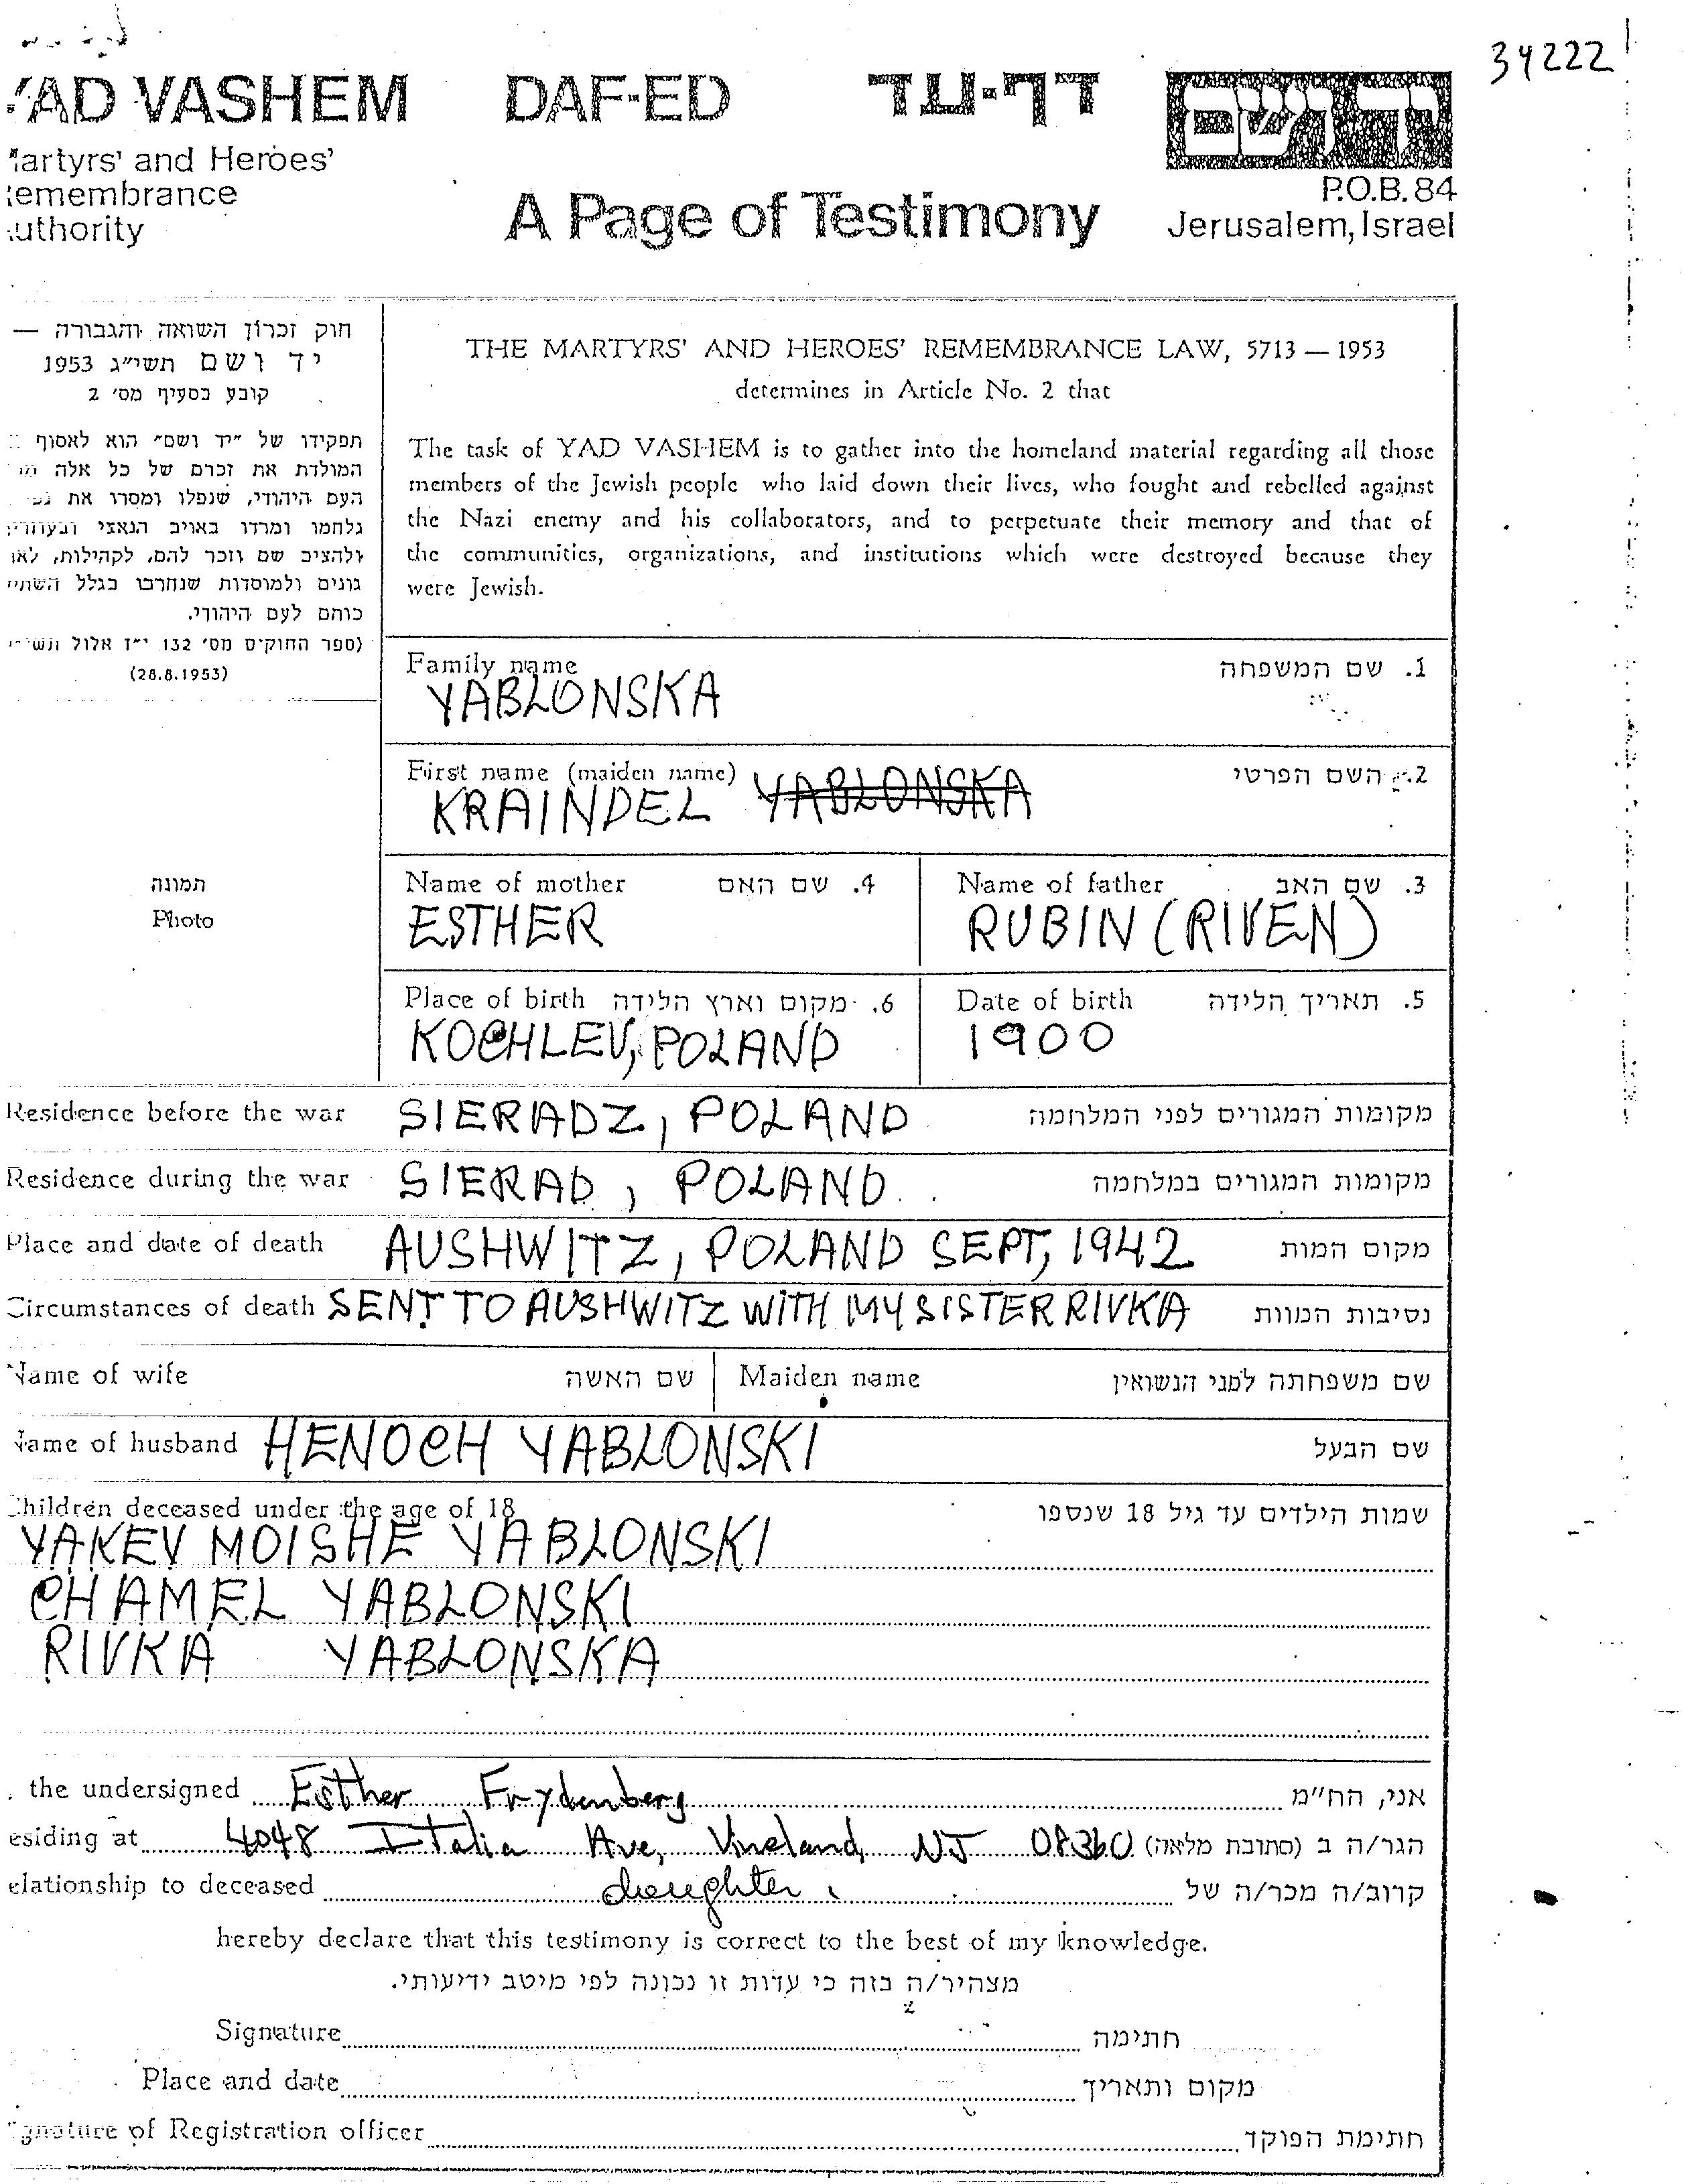 34222
YAD VASHEM DAF-ED דף-עד ידושם
Martyrs' and Heroes'
Remembrance
Authority
A Page of Testimony
P.O.B. 84
Jerusalem, Israel
חוק זכרון השואה והגבורה —
יד ושם תשי״ג 1953
קובע בסעיף מס׳ 2
תפקידו של ״יד ושם״ הוא לאסוף
המולדת את זכרם של כל אלה
העם היהודי, שנפלו ומסרו את
נלחמו ומרדו באויב הנאצי ובעוזריו
ולהציב שם וזכר להם, לקהילות,
גונים ולמוסדות שנחרבו בגלל
כותם לעם היהודי.
(ספר החוקים מס׳ 132 י״ז אלול
(28.8.1953)
THE MARTYRS' AND HEROES' REMEMBRANCE LAW, 5713 — 1953
determines in Article No. 2 that
The task of YAD VASHEM is to gather into the homeland material regarding all those
members of the Jewish people who laid down their lives, who fought and rebelled against
the Nazi enemy and his collaborators, and to perpetuate their memory and that of
the communities, organizations, and institutions which were destroyed because they
were Jewish.
Family name 1. שם המשפחה
YABLONSKA
First name (maiden name) 2. השם הפרטי
KRAINDEL YABLONSKA
תמונה
Photo
Name of mother 4. שם האם Name of father 3. שם האב
ESTHER RUBIN (RIVEN)
Place of birth 6. מקום וארץ הלידה Date of birth 5. תאריך הלידה
KOCHLEV, POLAND 1900
Residence before the war SIERADZ, POLAND מקומות המגורים לפני המלחמה
Residence during the war SIERAD, POLAND מקומות המגורים במלחמה
Place and date of death AUSHWITZ, POLAND SEPT, 1942 מקום המות
Circumstances of death SENT TO AUSHWITZ WITH MY SISTER RIVKA נסיבות המוות
Name of wife שם האשה Maiden name שם משפחתה לפני הנשואין
Name of husband HENOCH YABLONSKI שם הבעל
Children deceased under the age of 18 שמות הילדים עד גיל 18 שנספו
YAKEV MOISHE YABLONSKI
CHAMEL YABLONSKI
RIVKA YABLONSKA
, the undersigned Esther Frydenberg אני, הח״מ
esiding at 4048 Italia Ave, Vineland, NJ 08360 הגר/ה ב (כתובת מלאה)
elationship to deceased daughter קרוב/ה מכר/ה של
hereby declare that this testimony is correct to the best of my knowledge.
מצהיר/ה בזה כי עדות זו נכונה לפי מיטב ידיעותי.
Signature חתימה
Place and date מקום ותאריך
Signature of Registration officer חתימת הפוקד